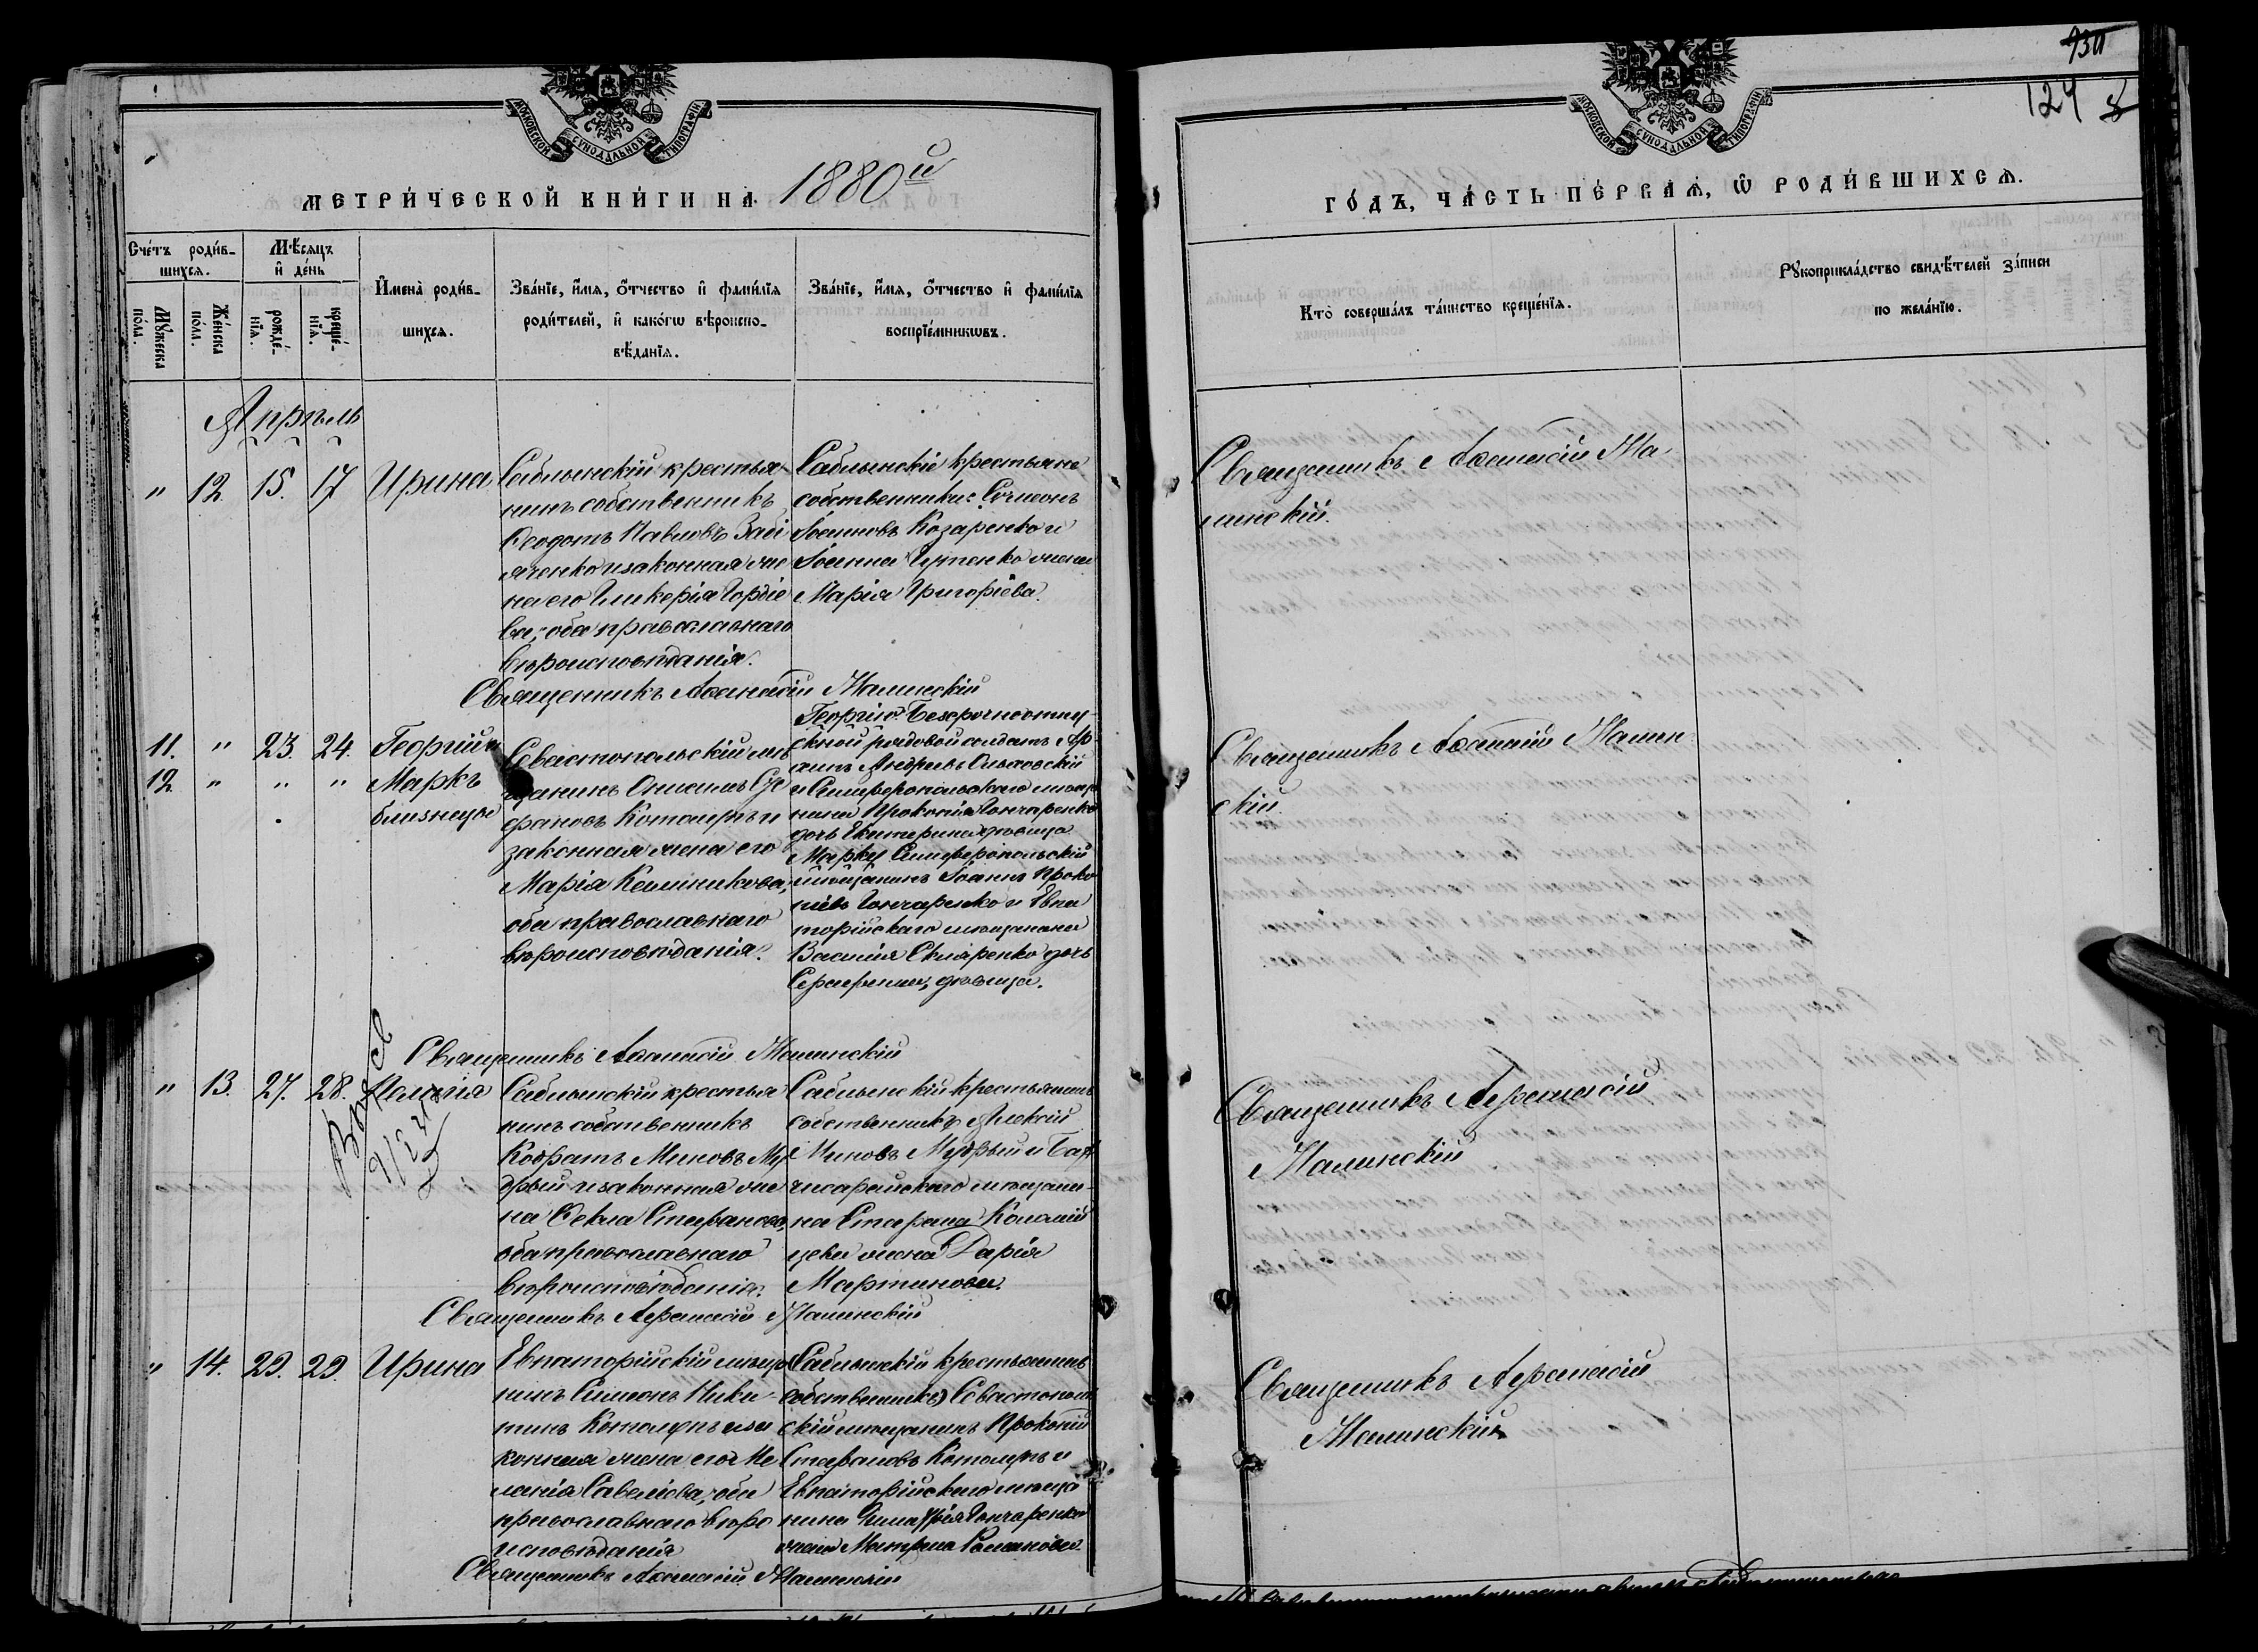 МОСКОВСКОЙ СѴНОДАЛЬНОЙ ТИПОГРАФІИ
МЕТРИ́ЧЕСКОЙ КНИ́ГИ НА 1880й
Сче́тъ роди́в-
шихсѧ.
Мꙋ́жеска
по́ла.
Же́нска
по́ла.
Мѣ́сѧцъ
и҆ де́нь
рожде́-
нїѧ.
креще́-
нїѧ.
И҆мена̀ роди́в-
шихсѧ.
Зва́нїе, и҆́мѧ, ѻ҆́тчество и҆ фами́лїѧ
роди́телей, и҆ како́гѡ вѣроиспо-
вѣ́данїѧ.
Зва́нїе, и҆́мѧ, ѻ҆́тчество и҆ фами́лїѧ
воспрїе́мникѡвъ.
Апрѣль
" 12. 15. 17 Ирина
Саблынскій крестья-
нинъ собственникъ
Ѳеодотъ Павловъ Забі
яченко и законная же
на его Гликерія Гордіе
ва; оба православнаго
вѣроисповѣданія.
Саблынскіе крестьяне
собственники: Симеонъ
Іоанновъ Козаренко и
Іоанна Чутенко жена
Марія Григоріева.
Священникъ Аѳанасій Малинскій
11. " 23. 24. Георгій и
12 " " " Маркъ
близнецы
Севастопольскій мѣ
щанинъ Онисимъ Сте
фановъ Котолупъ и
законная жена его
Марія Калиникова;
оба православнаго
вѣроисповѣданія.
Георгію: Безсрочноотпу-
скной рядовой солдатъ
Андреевъ Ольховскій
и Симферопольскаго мѣща
нина Прокопія Гончаренко
дочь Екатерина дѣвица
Марку Симферопольскій
мѣщанинъ Іоаннъ Проко
піевъ Гончаренко и Евпа
торійскаго мѣщанина
Василія Скляренко дочь
Серафима, дѣвица.
Священникъ Аѳанасій Малинскій
" 13. 27. 28. Пелагія
Саблынскій крестья
нинъ собственникъ
Кодратъ Миновъ Му
дрый и законная же
на Ѳекла Стефанова,
оба православнаго
вѣроисповѣданія.
Саблынскій крестьянинъ
собственникъ Алексій
Миновъ Мудрый и Бах
чисарайскаго мѣщани-
на Стефана Коломій
цева жена Дарія
Мартинова.
Священникъ Аѳанасій Малинскій
" 14. 29. 29. Ирина
Евпаторійскій мѣща
нинъ Симеонъ Ники-
тинъ Котолупъ и за
конная жена его Ме
ланія Савеліева; оба
православнаго вѣро
исповѣданія
Саблынскій крестьянинъ
собственникъ) Севастополь
скій мѣщанинъ Прокопій
Стефановъ Котолупъ и
Евпаторійскаго мѣща
нина Гончаренко
жена Матрона Романова.
Священникъ Аѳанасій Малинскій
МОСКОВСКОЙ СѴНОДАЛЬНОЙ ТИПОГРАФІИ
124
ГО́ДЪ, ЧА́СТЬ ПЕ́РВАѦ, Ѡ҆ РОДИ́ВШИХСѦ.
Кто̀ соверша́лъ та́инство креще́нїѧ.
Рꙋкоприкла́дство свидѣ́телей за́писи
по жела́нїю.
Священникъ Аѳанасій Ма-
линскій.
Священникъ Аѳанасій Малин-
скій.
Священникъ Аѳанасій
Малинскій
Священникъ Аѳанасій
Малинскій